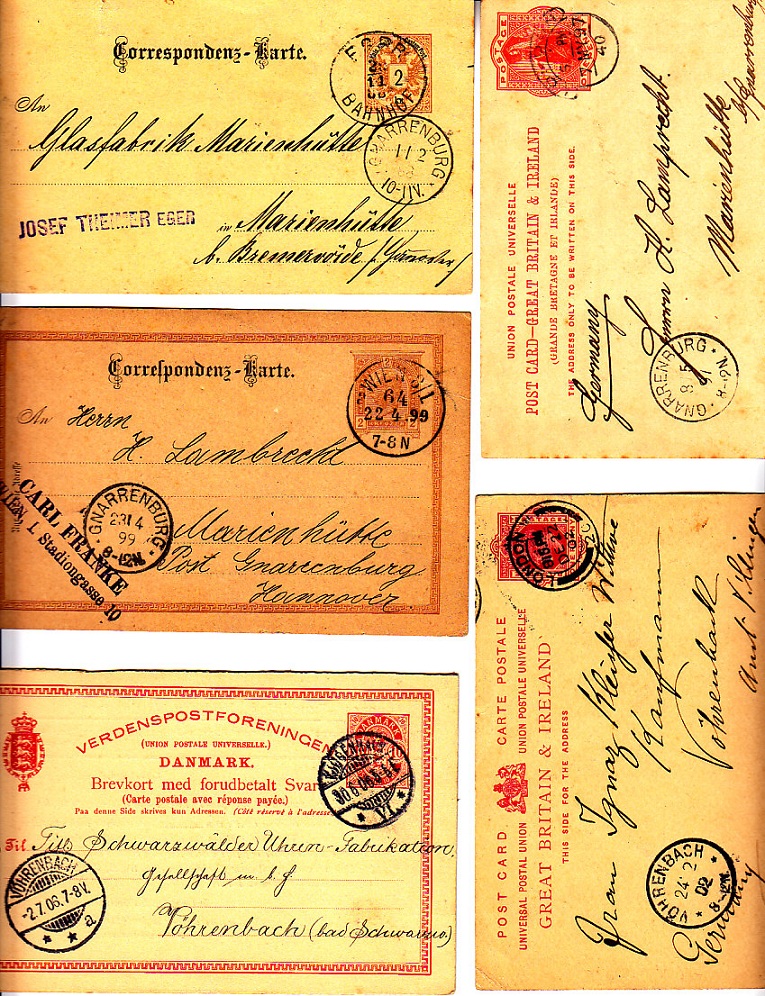 Correspondenz-Karte.
EGER
BAHNHOF
An
Glasfabrik Marienhütte
GNARRENBURG
11 2
10-11V.
JOSEF THEIMER EGER
in Marienhütte
b. Bremervörde / Hannover /
Correspondenz-Karte.
WIEN
64
22.4.99
7-8N
2
2
An Herrn
H. Lambrecht
GNARRENBURG
23 4
99
8-12N.
CARL FRANKE
WIEN I. Stadiongasse 10
Marienhütte
Post Gnarrenburg
Hannover
VERDENSPOSTFORENINGEN
(UNION POSTALE UNIVERSELLE.)
DANMARK.
DANMARK
Brevkort med forudbetalt Svar
(Carte postale avec réponse payée.)
Paa denne Side skrives kun Adressen. (Côté réservé à l'adresse
30.6.06
Til Tit. Schwarzwälder Uhren-Fabrikation,
Gesellschaft m. b. H
Vöhrenbach (bad Schwarzw.)
VÖHRENBACH
-2.7.06.7-8V.
* * a
POSTAGE
UNION POSTALE UNIVERSELLE
POST CARD-GREAT BRITAIN & IRELAND
(GRANDE BRETAGNE ET IRLANDE)
THE ADDRESS ONLY TO BE WRITTEN ON THIS SIDE.
Herrn H. Lamprecht.
Marienhütte
b/ Gnarrenburg
Germany
GNARRENBURG
8 5
8-12N.
POSTAGE
LONDON
DE 22
02
POST CARD. CARTE POSTALE
UNIVERSAL POSTAL UNION UNION POSTALE UNIVERSELLE
GREAT BRITAIN & IRELAND
THIS SIDE FOR THE ADDRESS
Frau Ignaz Kleiser Wittwe
Kaufmann
Vöhrenbach
Amt Villingen
Germany
VÖHRENBACH
24 12
02
8-12N